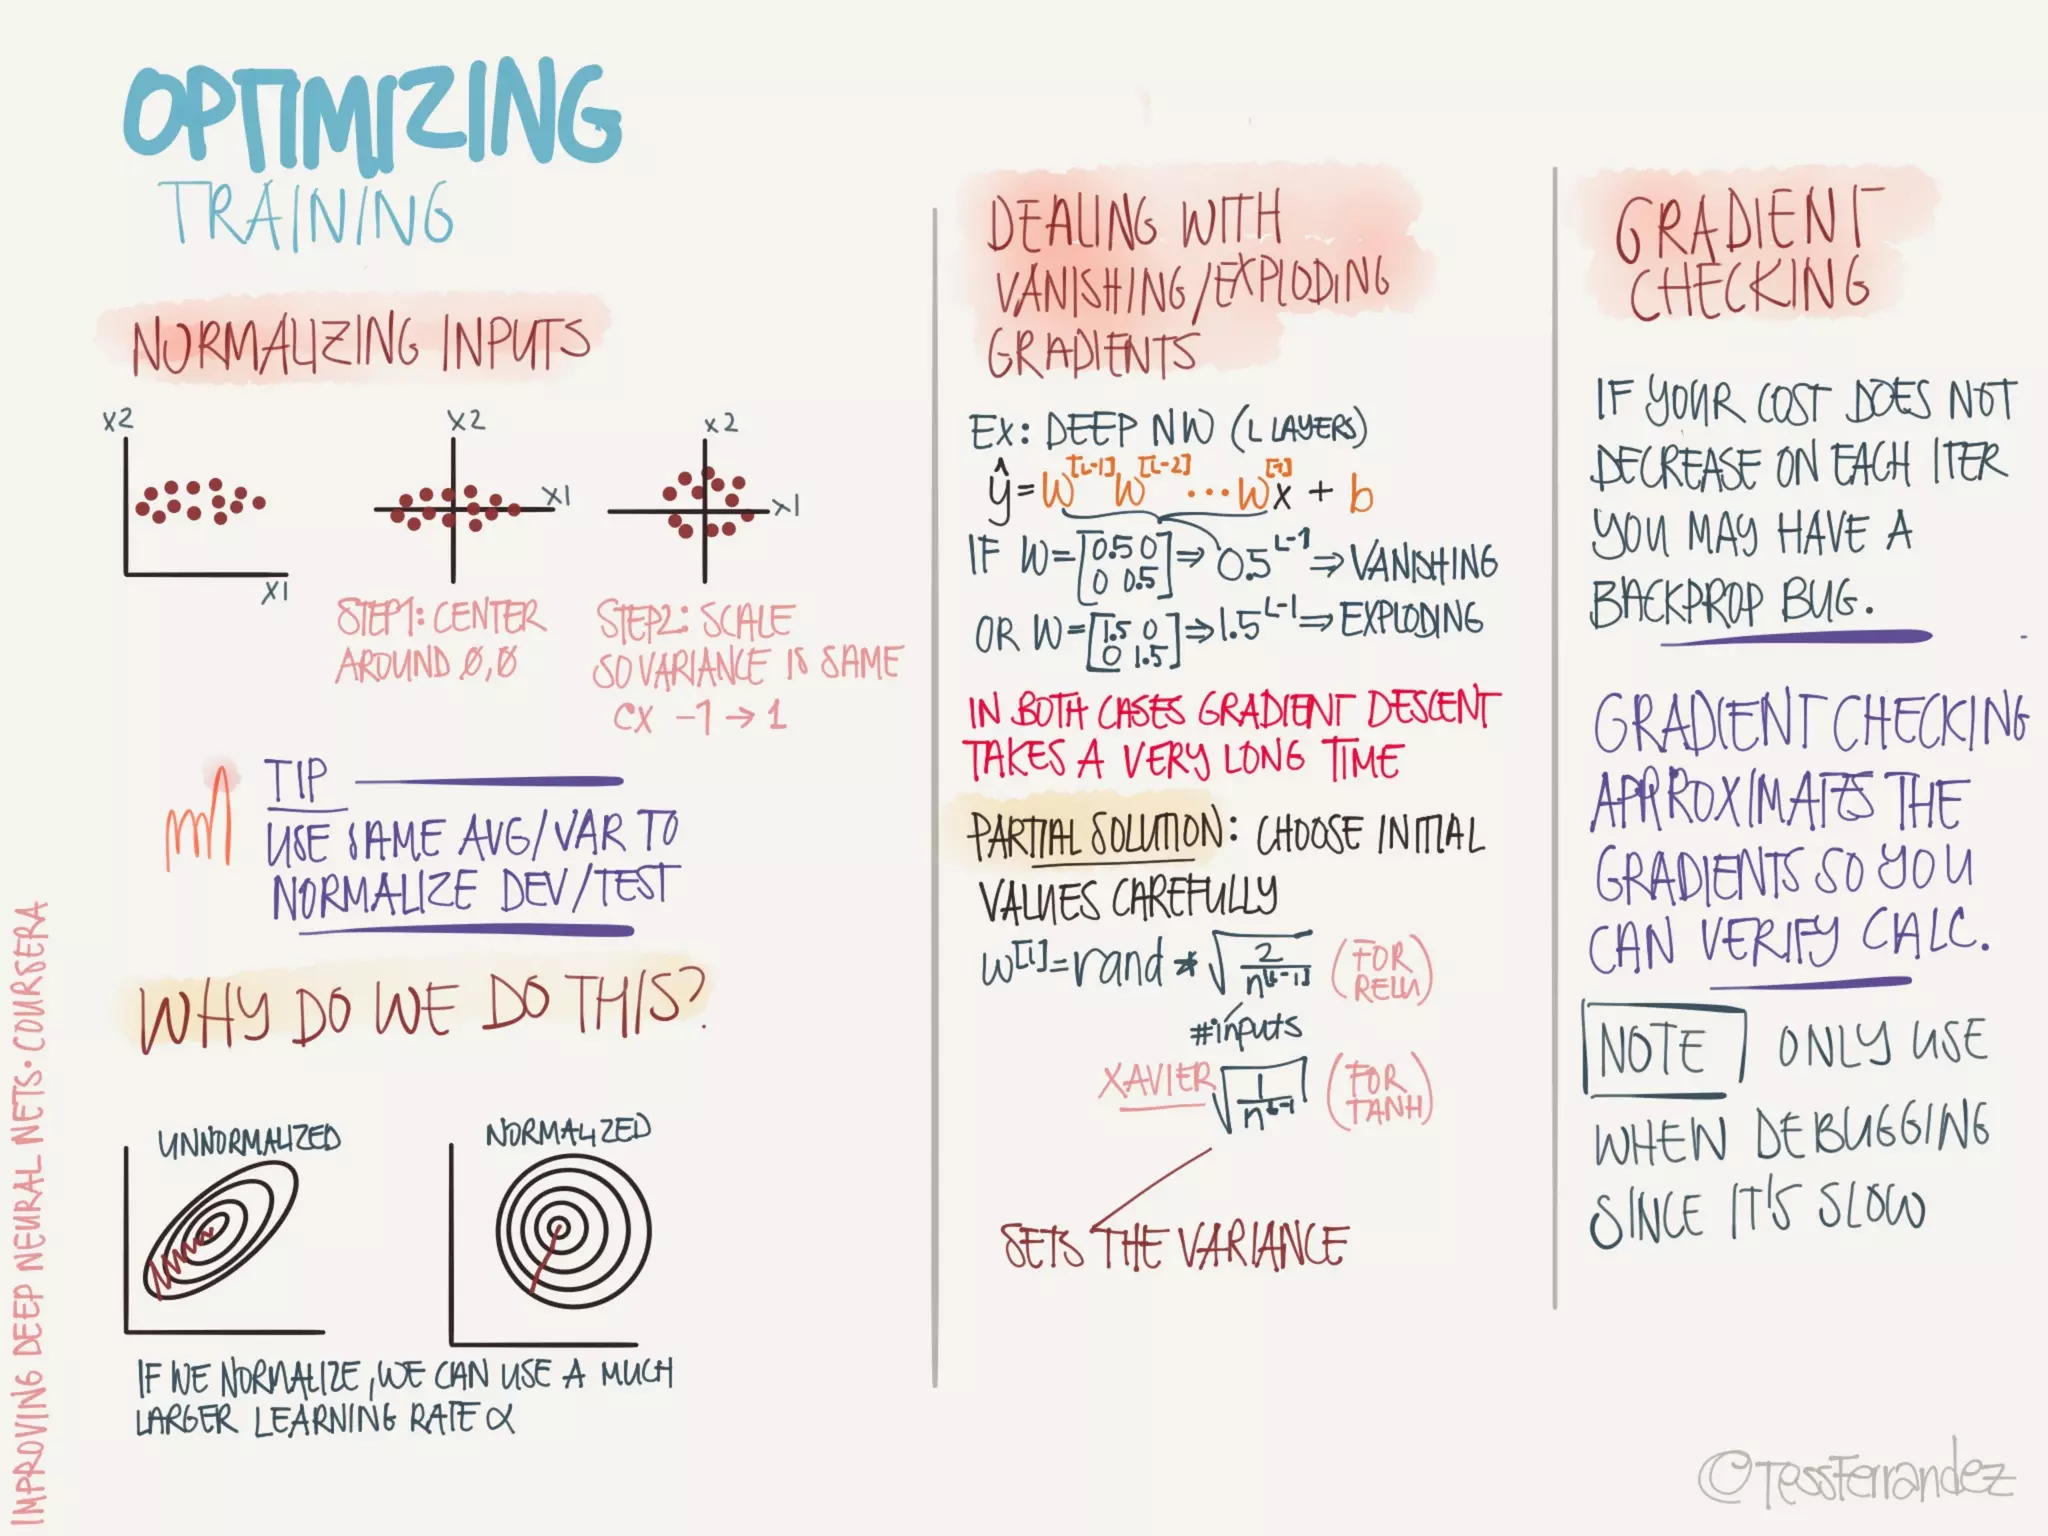 OPTIMIZING
TRAINING
NORMALIZING INPUTS
X2
X1
X2
X1
X2
X1
STEP1: CENTER
AROUND 0,0
STEP2: SCALE
SO VARIANCE IS SAME
EX -1 → 1
TIP
USE SAME AVG/VAR TO
NORMALIZE DEV/TEST
WHY DO WE DO THIS?
UNNORMALIZED
NORMALIZED
IF WE NORMALIZE, WE CAN USE A MUCH
LARGER LEARNING RATE α
DEALING WITH
VANISHING/EXPLODING
GRADIENTS
EX: DEEP NW (L LAYERS)
ŷ = W[L-1] W[L-2] ... W[1] x + b
IF W = [0.5 0
0 0.5] ⇒ 0.5^L-1 ⇒ VANISHING
OR W = [1.5 0
0 1.5] ⇒ 1.5^L-1 ⇒ EXPLODING
IN BOTH CASES GRADIENT DESCENT
TAKES A VERY LONG TIME
PARTIAL SOLUTION: CHOOSE INITIAL
VALUES CAREFULLY
W[l] = rand * √2/n[l-1] (FOR RELU)
#inputs
XAVIER √1/n^l-1 (FOR TANH)
SETS THE VARIANCE
GRADIENT
CHECKING
IF YOUR COST DOES NOT
DECREASE ON EACH ITER
YOU MAY HAVE A
BACKPROP BUG.
GRADIENT CHECKING
APPROXIMATES THE
GRADIENTS SO YOU
CAN VERIFY CALC.
NOTE ONLY USE
WHEN DEBUGGING
SINCE IT'S SLOW
IMPROVING DEEP NEURAL NETS · COURSERA
©TessFerrandez